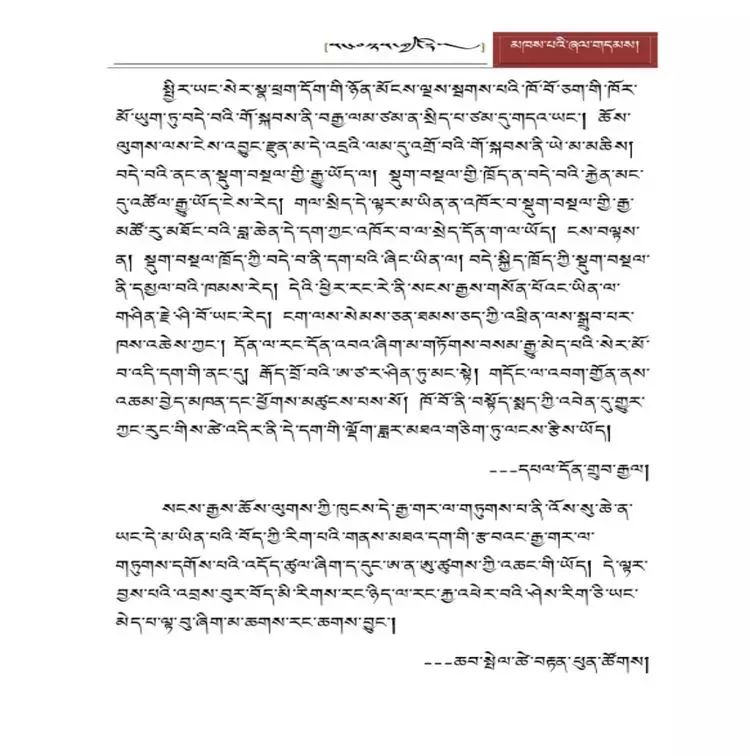 མཁས་པའི་ཞལ་གདམས།
སྤྱིར་ཡང་སེར་སྣ་ཕྲག་དོག་གི་ཉོན་མོངས་ལྷས་སྦགས་པའི་ཁོ་བོ་ཅག་གི་ཁོར་
མོ་ཡུག་ཏུ་བདེ་བའི་གོ་སྐབས་ནི་བརྒྱ་ལམ་ཙམ་ན་སྲིད་པ་ཙམ་དུ་གདའ་ཡང་། ཆོས་
ལུགས་ལས་ངེས་འབྱུང་རྫུན་མ་དེ་འདྲའི་ལམ་དུ་འགྲོ་བའི་གོ་སྐབས་ནི་ཡེ་མ་མཆིས།
བདེ་བའི་ནང་ན་སྡུག་བསྔལ་གྱི་རྒྱུ་ཡོད་ལ། སྡུག་བསྔལ་གྱི་ཁྲོད་ན་བདེ་བའི་རྐྱེན་མང་
དུ་འཚོལ་རྒྱུ་ཡོད་ངེས་རེད། གལ་སྲིད་དེ་ལྟར་མ་ཡིན་ན་འཁོར་བ་སྡུག་བསྔལ་གྱི་རྒྱ་
མཚོ་རུ་མཐོང་བའི་བླ་ཆེན་དེ་དག་ཀྱང་འཁོར་བ་ལ་སྲེད་དོན་ག་ལ་ཡོད། ངས་བལྟས་
ན། སྡུག་བསྔལ་ཁྲོད་ཀྱི་བདེ་བ་ནི་དག་པའི་ཞིང་ཡིན་ལ། བདེ་སྐྱིད་ཁྲོད་ཀྱི་སྡུག་བསྔལ་
ནི་དམྱལ་བའི་ཁམས་རེད། དེའི་ཕྱིར་རང་རེ་ནི་སངས་རྒྱས་གསོན་པོའང་ཡིན་ལ་
གཤིན་རྗེ་ཤི་བོ་ཡང་རེད། ངག་ལས་སེམས་ཅན་ཐམས་ཅད་ཀྱི་འཕྲིན་ལས་སྒྲུབ་པར་
ཁས་འཆེས་ཀྱང་། དོན་ལ་རང་དོན་འབའ་ཞིག་མ་གཏོགས་བསམ་རྒྱུ་མེད་པའི་སེར་མོ་
བ་འདི་དག་གི་ནང་དུ། རྒོད་བྲོ་བའི་ཨ་ཙར་ཤིན་ཏུ་མང་སྟེ། གདོང་ལ་འབག་གྱོན་ནས་
འཆམ་བྱེད་མཁན་དང་ཕྱོགས་མཚུངས་པས་སོ། ཁོ་བོ་ནི་བསྟོད་སྨད་ཀྱི་འབེན་དུ་གྱུར་
ཀྱང་རུང་གིས་ཚེ་འདིར་ནི་དེ་དག་གི་ལྡོག་ཟླར་མཐའ་གཅིག་ཏུ་ལངས་རྩིས་ཡོད།
---དཔལ་དོན་གྲུབ་རྒྱལ།
སངས་རྒྱས་ཆོས་ལུགས་ཀྱི་ཁུངས་དེ་རྒྱ་གར་ལ་གཏུགས་པ་ནི་འོས་སུ་ཆེ་ན་
ཡང་དེ་མ་ཡིན་པའི་བོད་ཀྱི་རིག་པའི་གནས་མཐའ་དག་གི་རྩ་བའང་རྒྱ་གར་ལ་
གཏུགས་དགོས་པའི་འདོད་ཚུལ་ཞིག་ད་དུང་ཨ་ན་ཨུ་ཚུགས་ཀྱི་འཆང་གི་ཡོད། དེ་ལྟར་
བྱས་པའི་འབྲས་བུར་བོད་མི་རིགས་རང་ཉིད་ལ་རང་རྐྱ་འཕེར་བའི་ཤེས་རིག་ཅི་ཡང་
མེད་པ་ལྟ་བུ་ཞིག་མ་ཆགས་རང་ཆགས་བྱུང་།
---ཆབ་སྤེལ་ཚེ་བརྟན་ཕུན་ཚོགས།